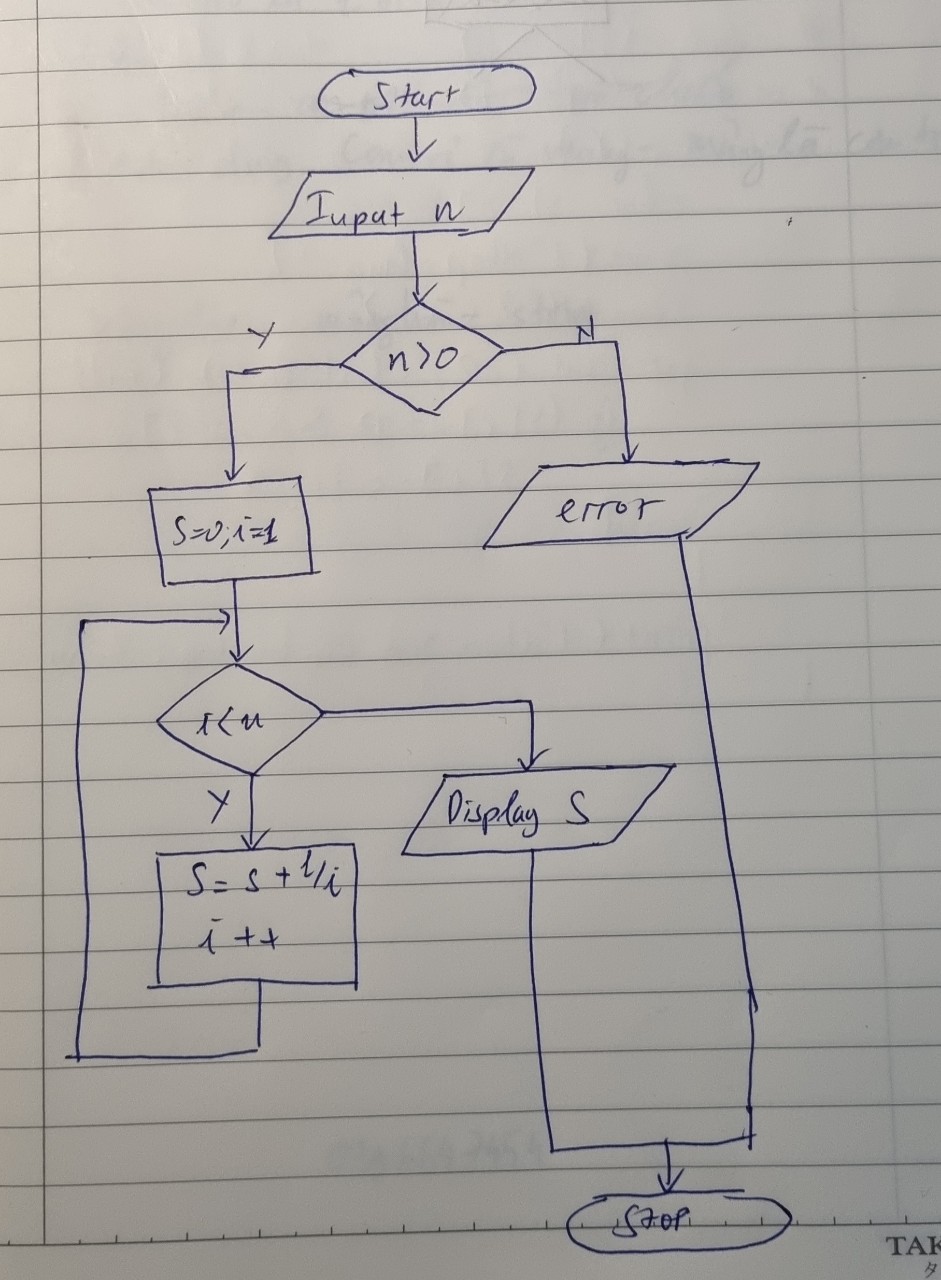 Start
Input n
n>0
Y
N
S=0; i=1
error
i<n
Y
Display S
S = s + 1/i
i ++
Stop
TAK